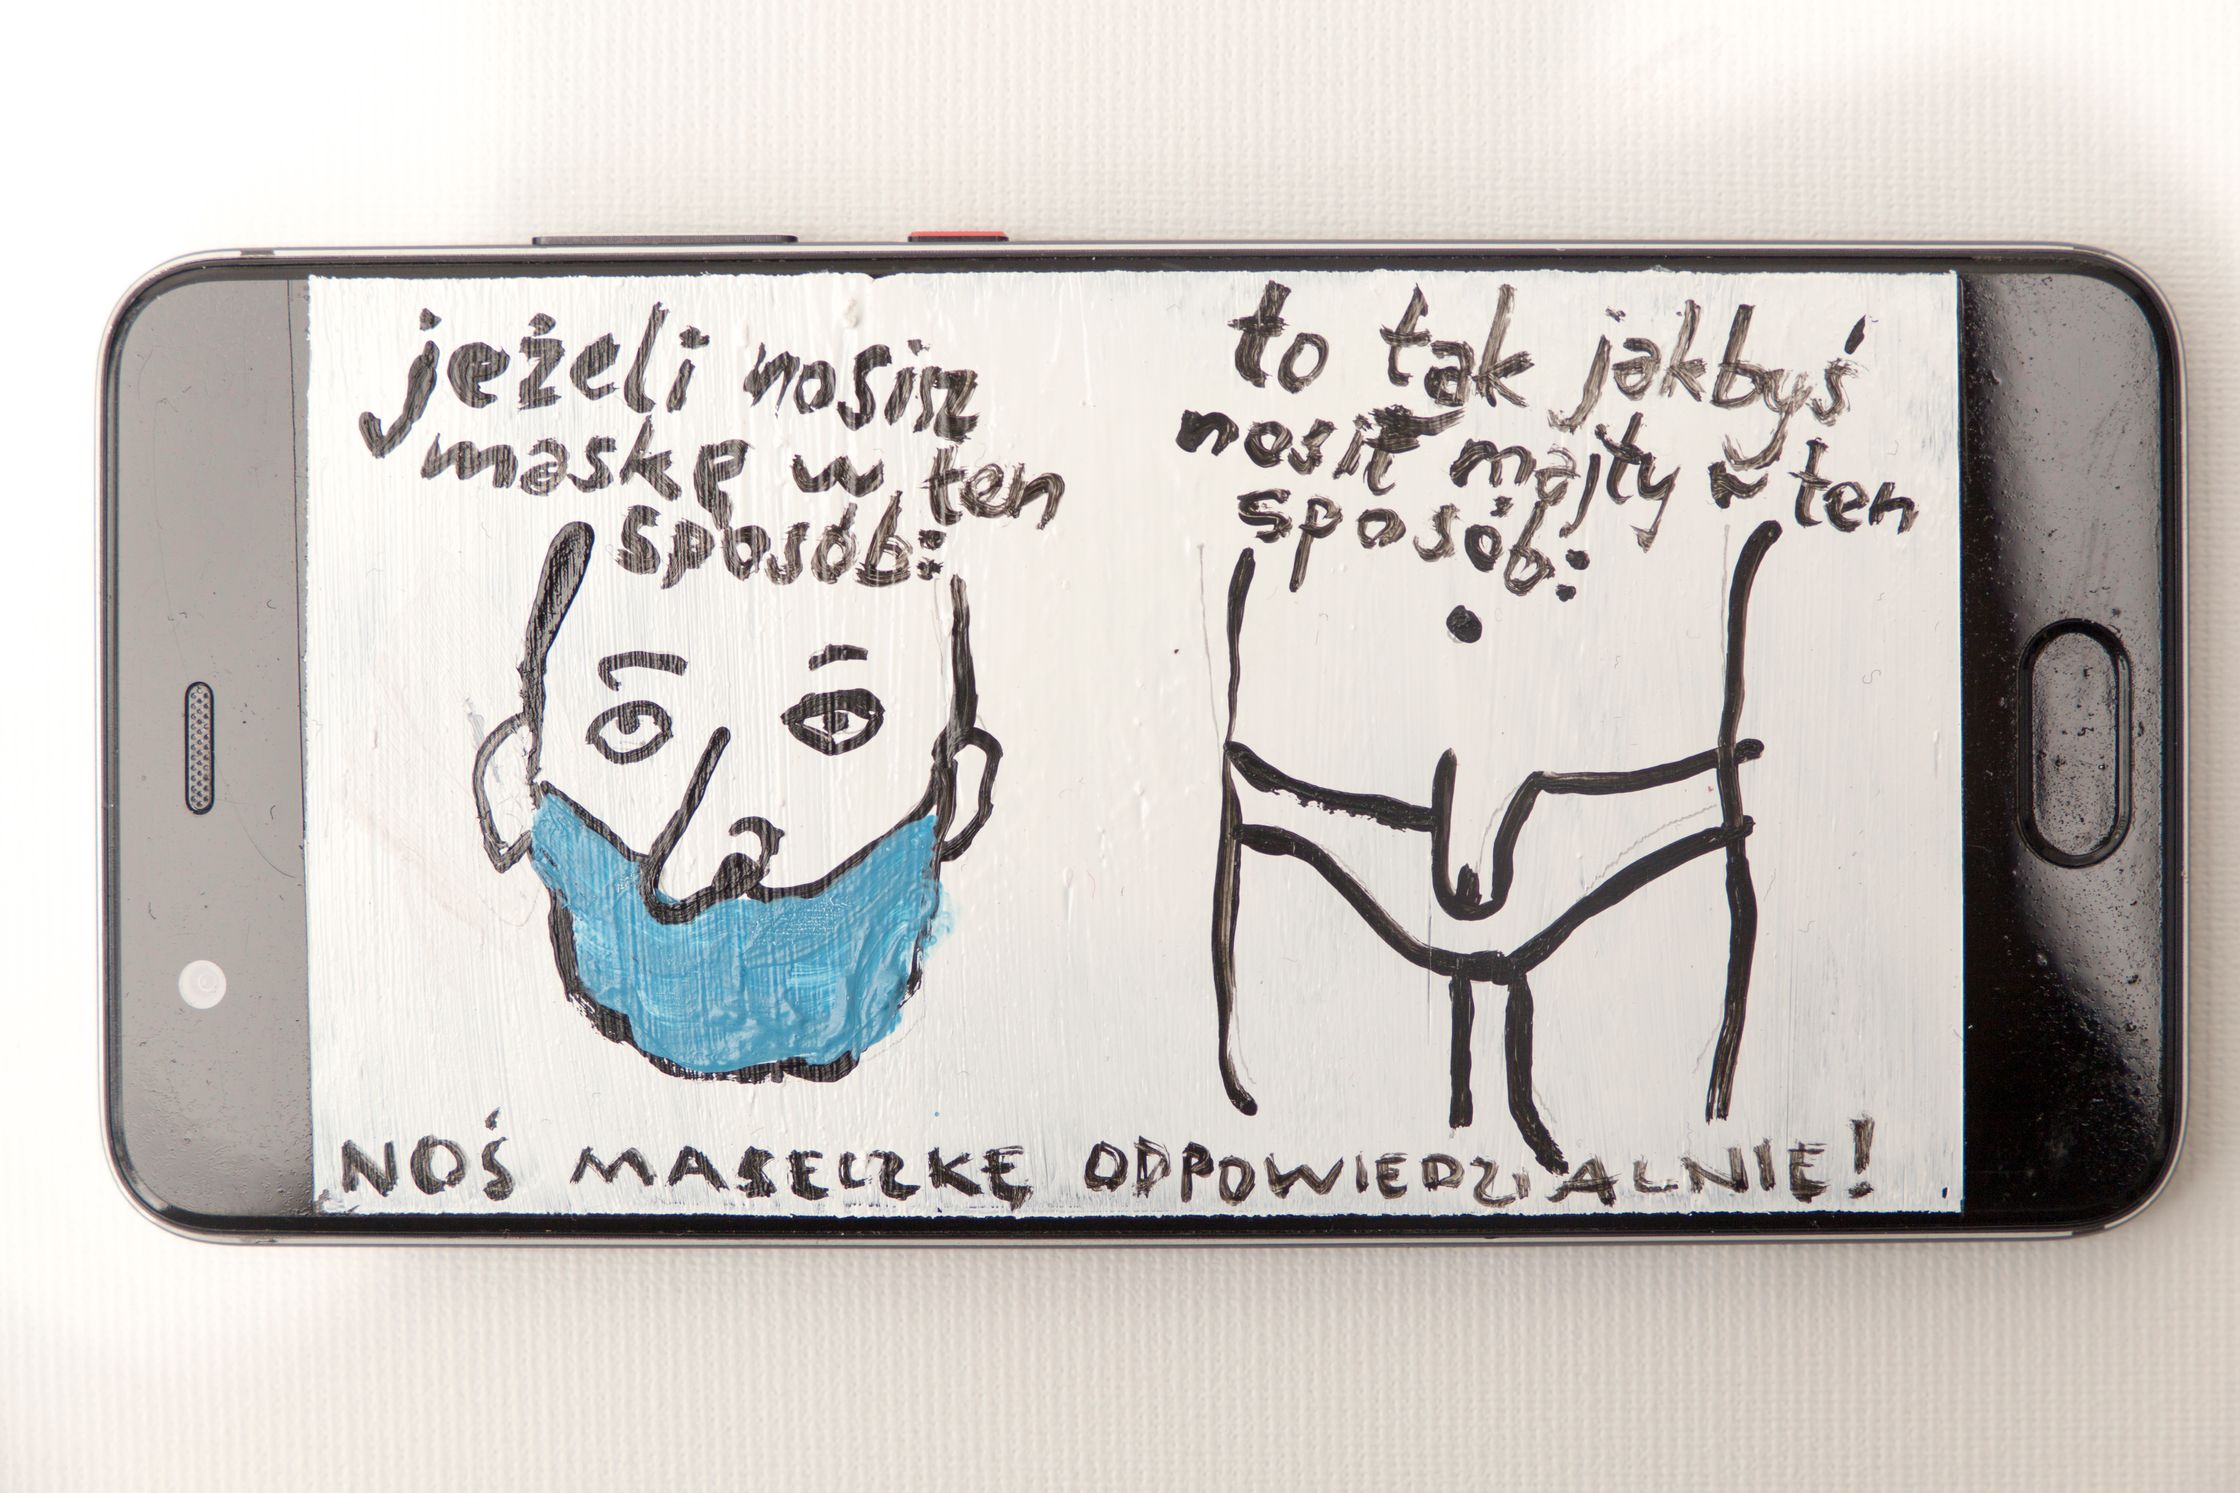 jeżeli nosisz
maskę w ten
sposób:
to tak jakbyś
nosił majty w ten
sposób:
NOŚ MASECZKĘ ODPOWIEDZIALNIE!